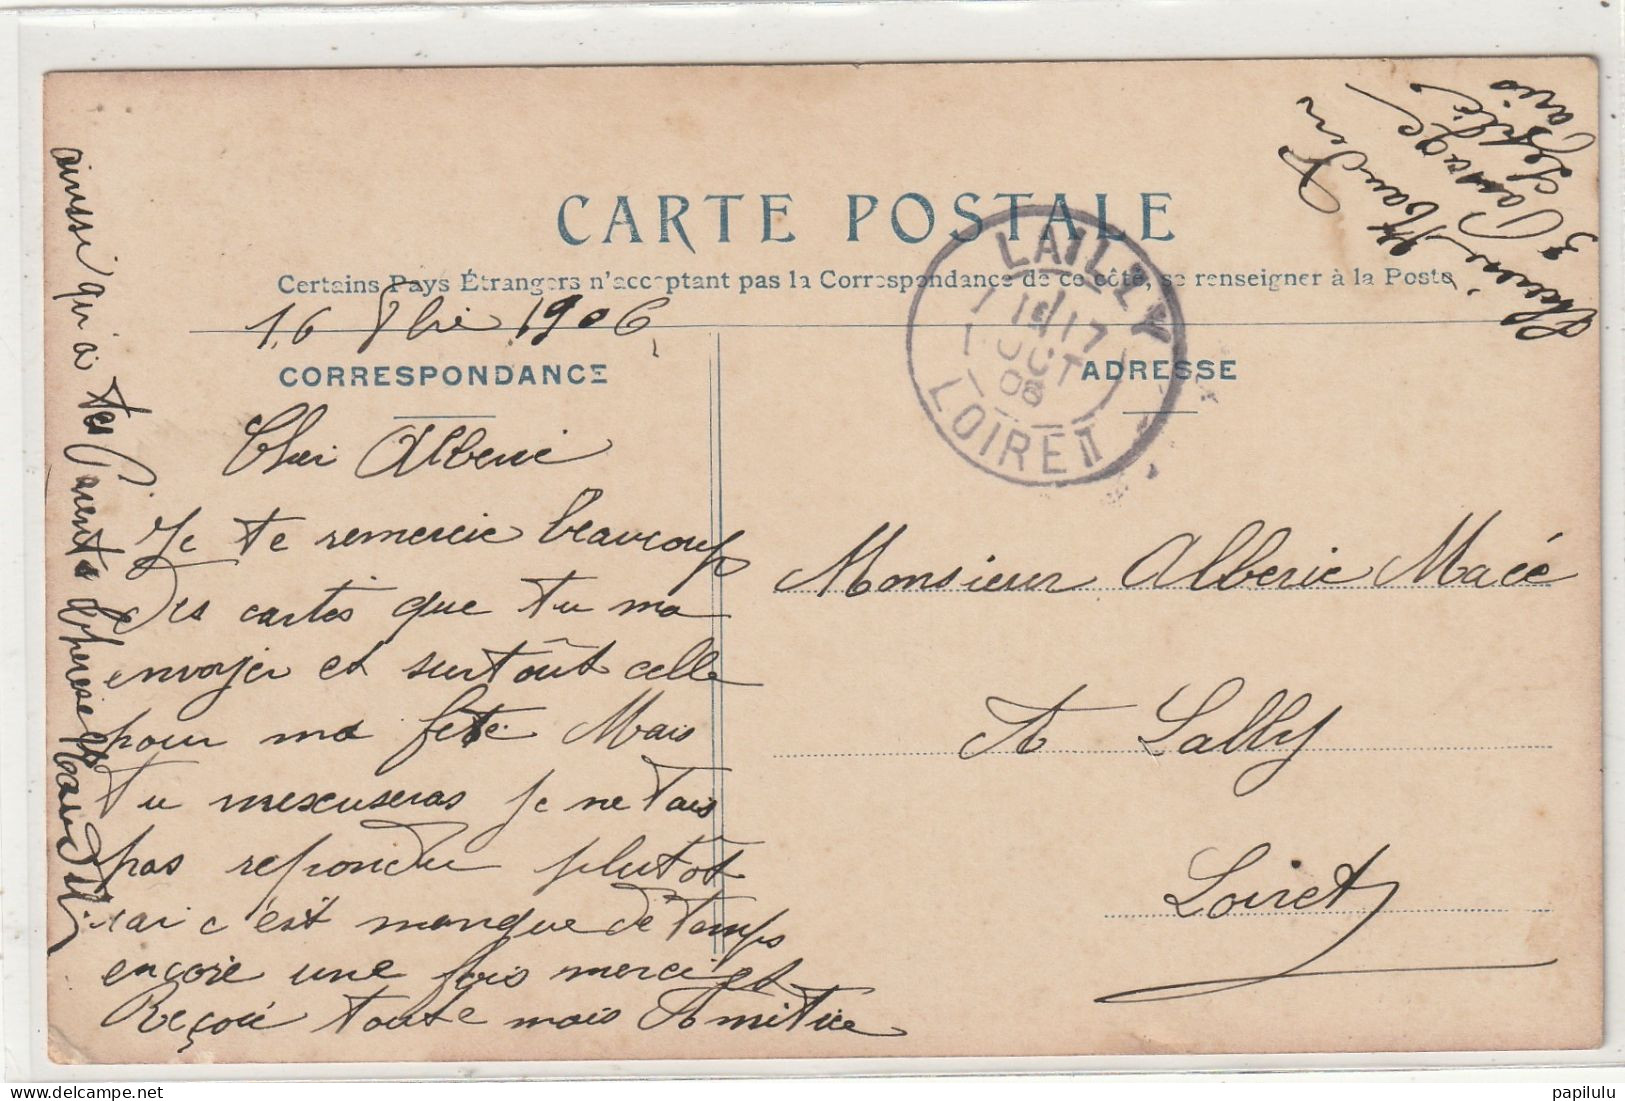 CARTE POSTALE
Certains Pays Étrangers n'acceptant pas la Correspondance de ce côté, se renseigner à la Poste
16 8bre 1906
CORRESPONDANCE
ADRESSE
LAILLY
17
OCT
LOIRET
Cher Alberic
Je te remercie beaucoup
des cartes que tu ma
envoyer et surtoût celle
pour ma fête Mais
tu mexuseras je ne tais
pas repondu plutôt
car c'est manque de temps
encore une fois merci et
Reçoie toute mais Amitice
ainsi qu'a tes Parents
Monsieur Alberic Macé
A Lally
Loiret
3 Passage
Paris
papilulu